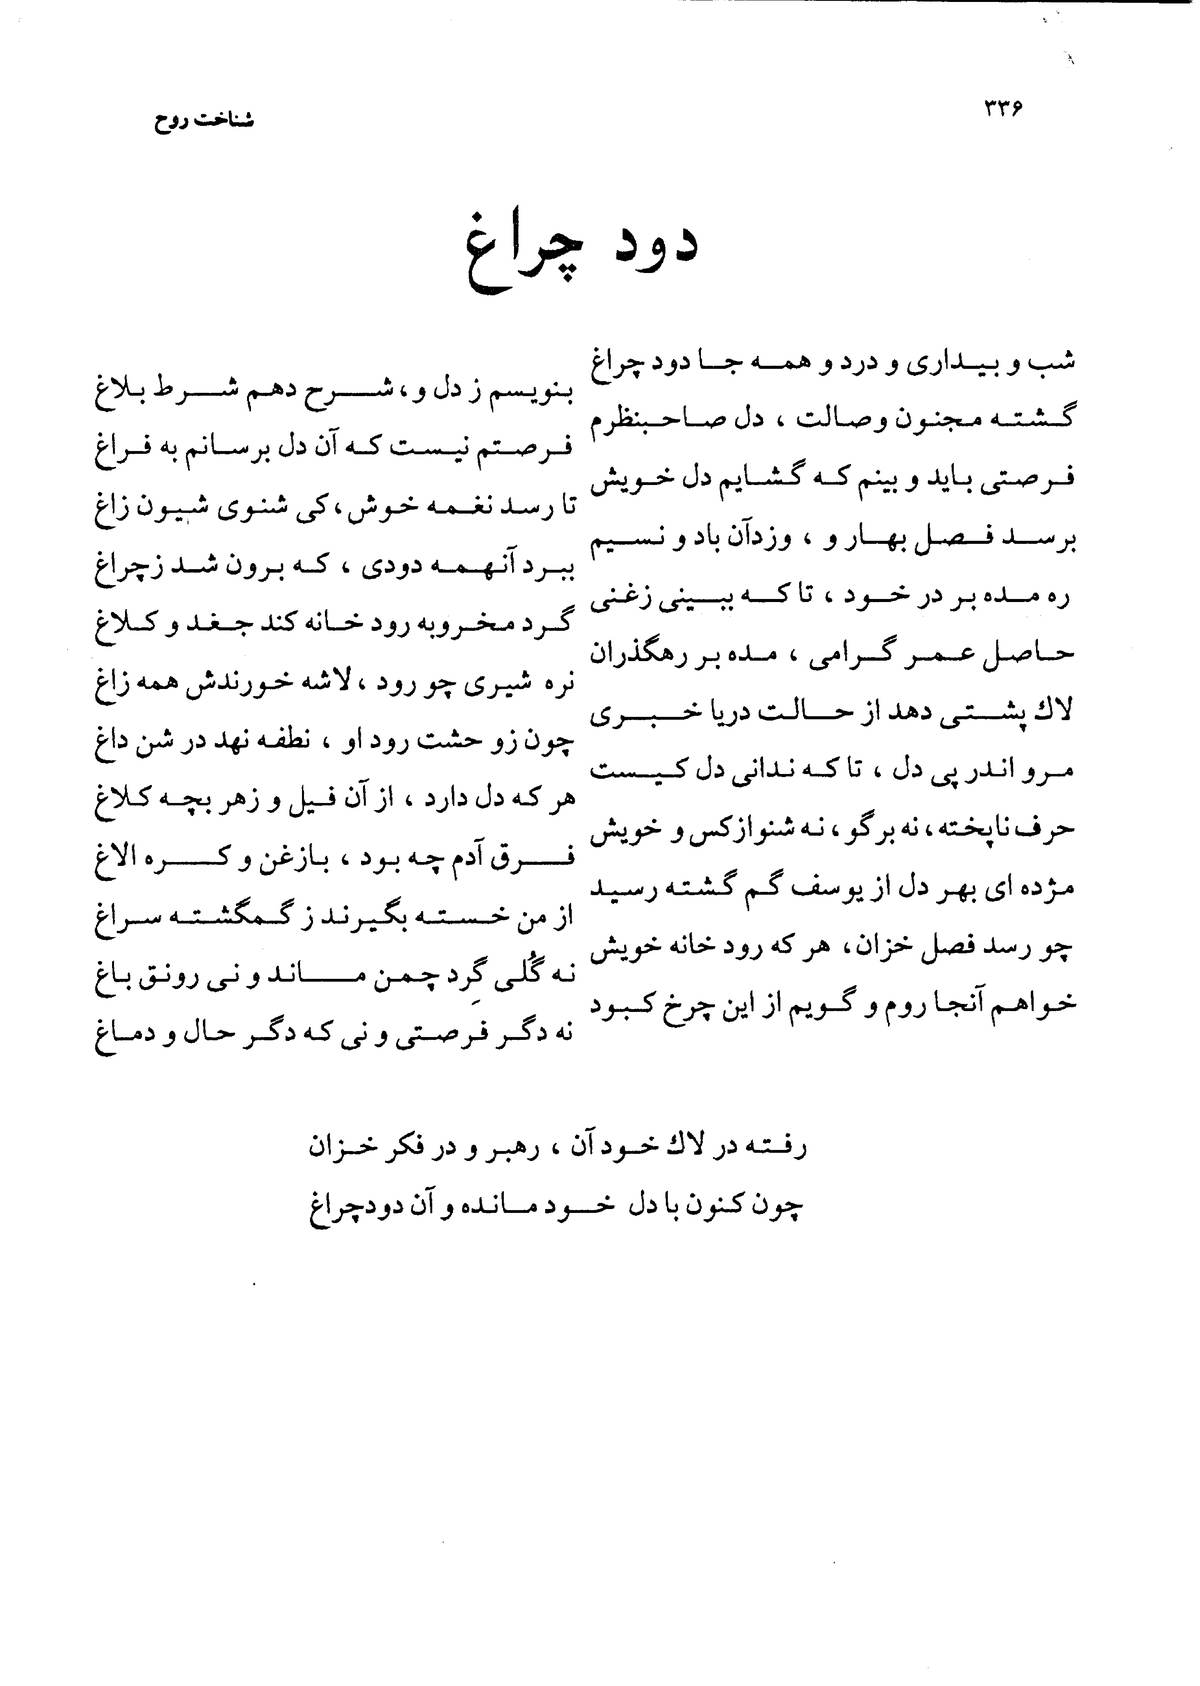 ۳۳۶
شناخت روح
دود چراغ
شب و بیداری و درد و همه جا دود چراغ
بنویسم ز دل و، شرح دهم شرط بلاغ
گشته مجنون وصالت ، دل صاحبنظرم
فرصتم نیست که آن دل برسانم به فراغ
فرصتی باید و بینم که گشایم دل خویش
تا رسد نغمه خوش، کی شنوی شیون زاغ
برسد فصل بهار و ، وزدآن باد و نسیم
ببرد آنهمه دودی ، که برون شد زچراغ
ره مده بر در خود ، تا که ببینی زغنی
گرد مخروبه رود خانه کند جغد و کلاغ
حاصل عمر گرامی ، مده بر رهگذران
نره شیری چو رود ، لاشه خورندش همه زاغ
لاک پشتی دهد از حالت دریا خبری
چون زو حشت رود او ، نطفه نهد در شن داغ
مرو اندر پی دل ، تا که ندانی دل کیست
هر که دل دارد ، از آن فیل و زهر بچه کلاغ
حرف ناپخته، نه برگو ، نه شنوازکس و خویش
فرق آدم چه بود ، بازغن و کره الاغ
مژده ای بهر دل از یوسف گم گشته رسید
از من خسته بگیرند ز گمگشته سراغ
چو رسد فصل خزان، هر که رود خانه خویش
نه گُلی گِرد چمن ماند و نی رونق باغ
خواهم آنجا روم و گویم از این چرخ کبود
نه دگر فرصتی و نی که دگر حال و دماغ
رفته در لاک خود آن ، رهبر و در فکر خزان
چون کنون با دل خود مانده و آن دودچراغ